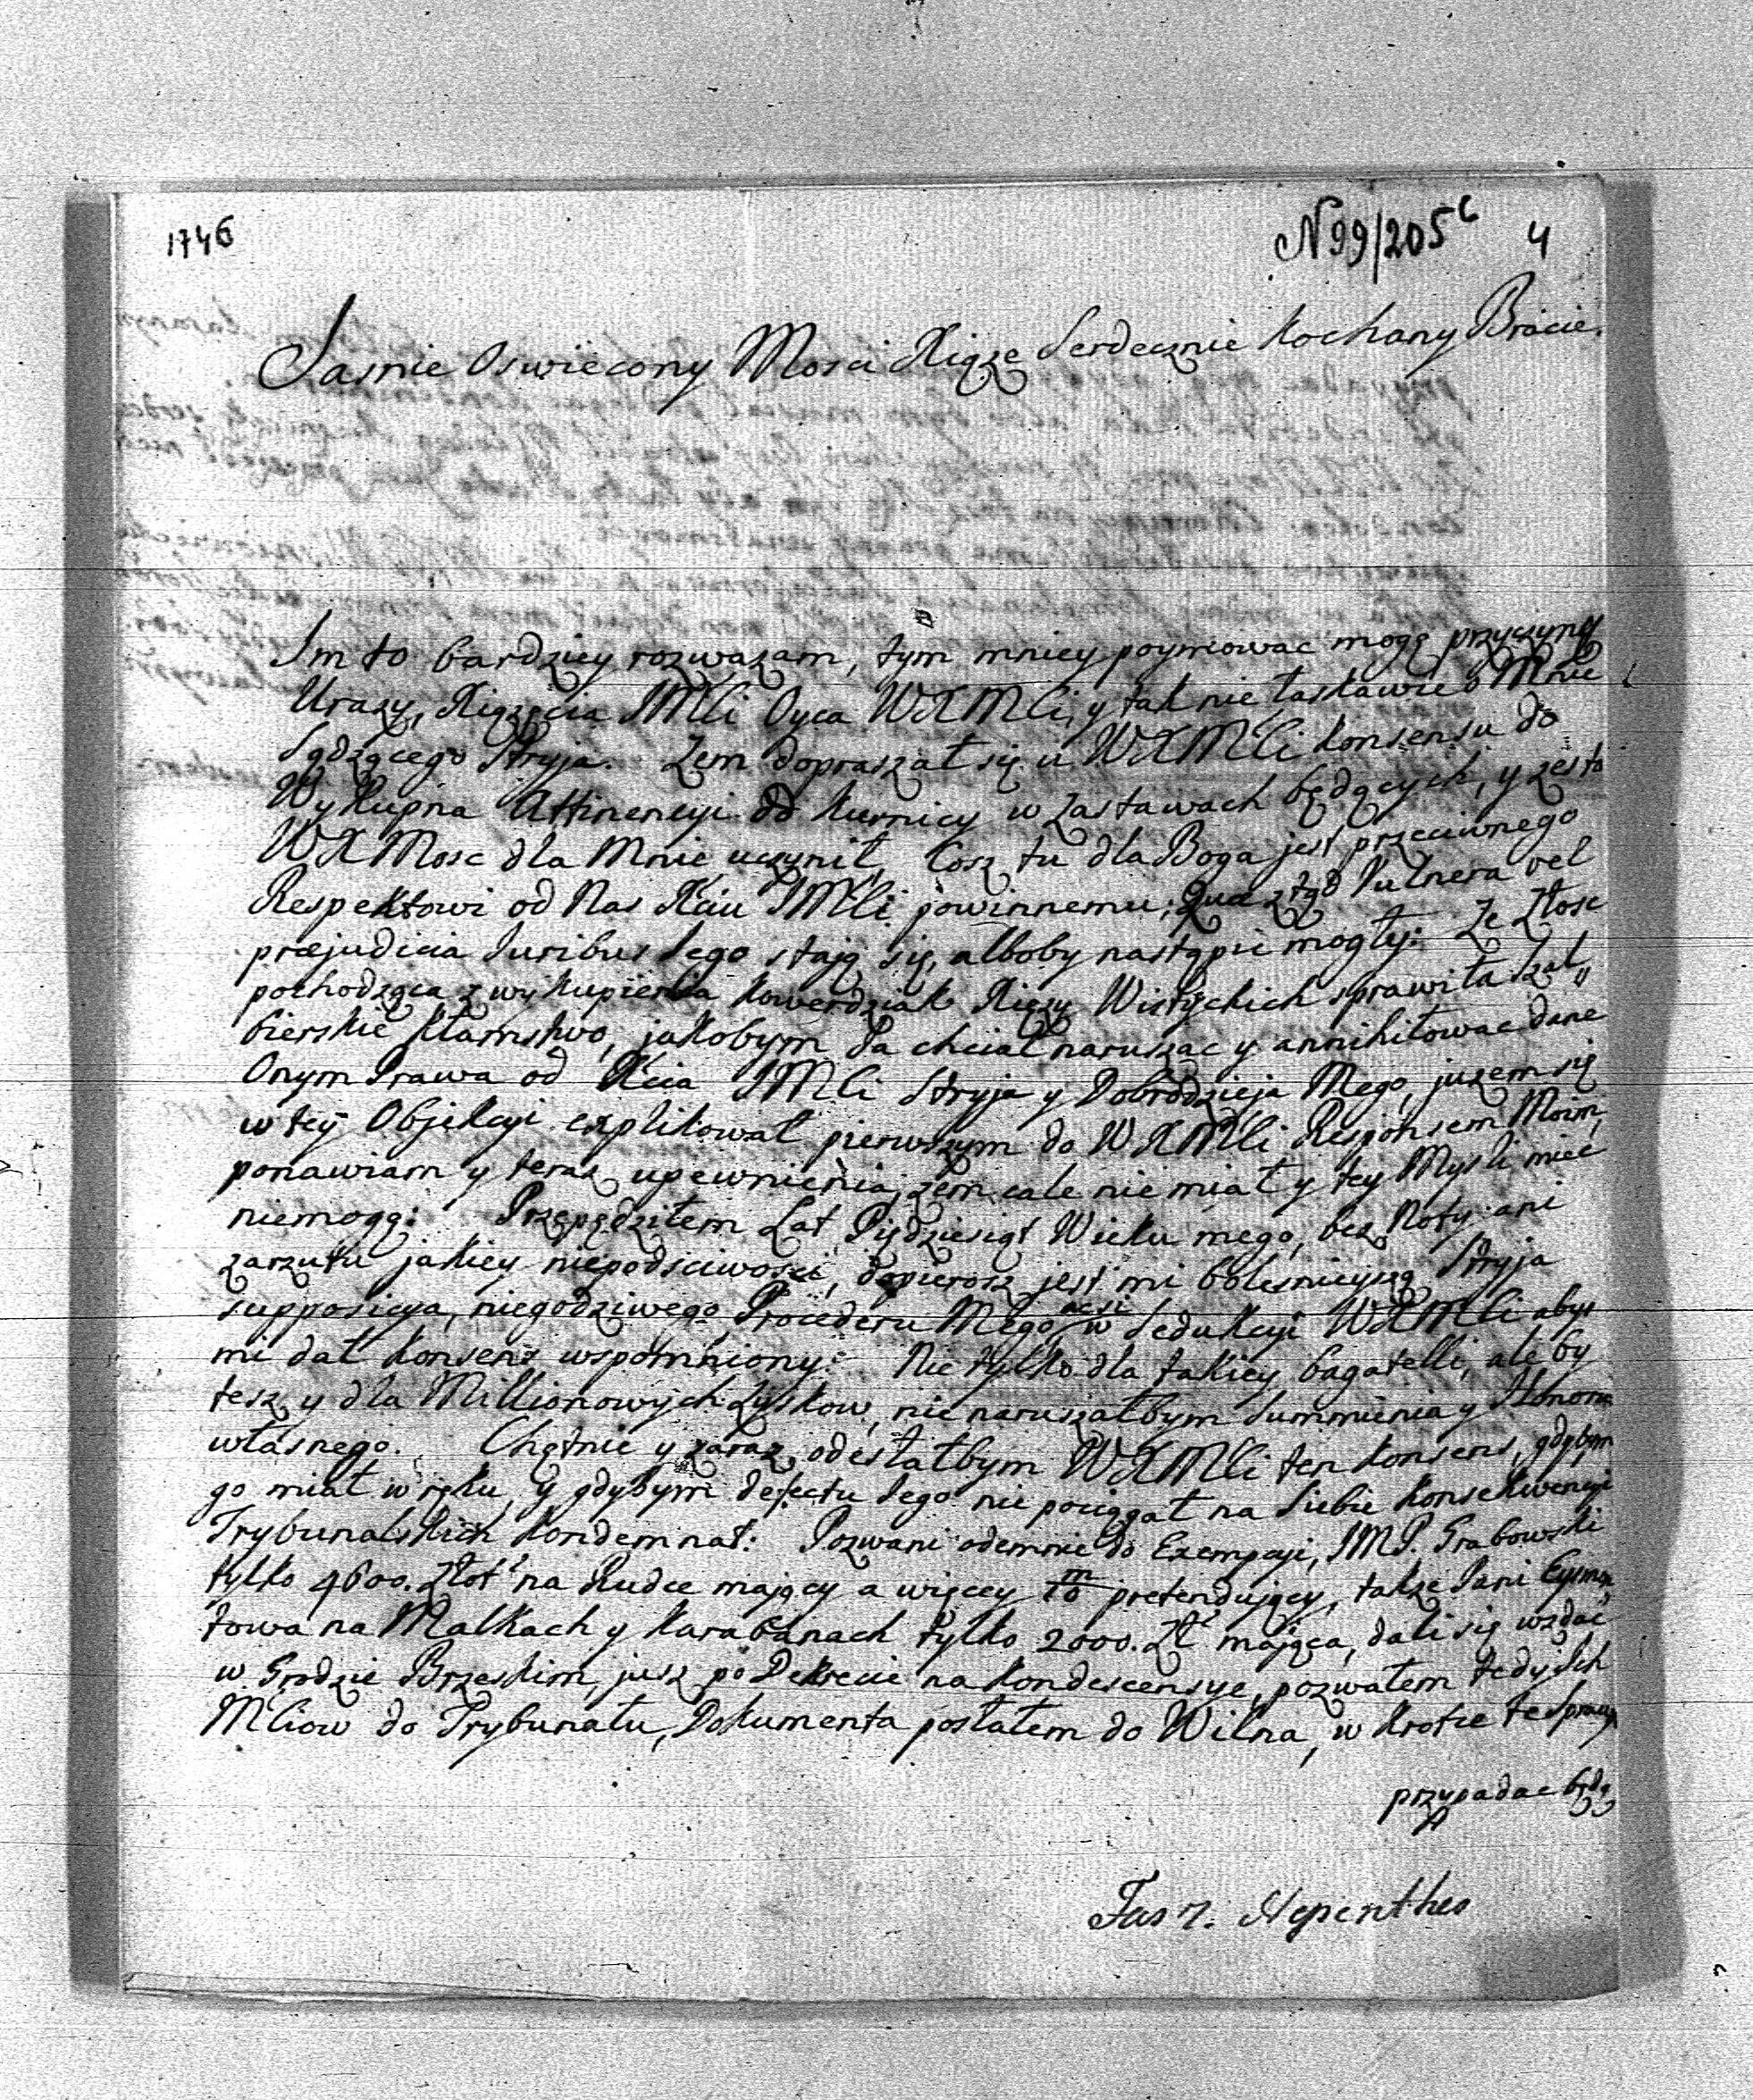 1746
N 99/205 4
Jasnie Oswiecony Mosci Xiąze Serdecznie Kochany Bracie.
Im to bardziey rozwazam, tym mniey poymowac mogę przyczynę
Urazy, Xiązęcia JMCi Oyca WXMCi, y tak nie łaskawie o Mnie
Sądzącego Stryja. Zem dopraszał się u WXMCi Konsensu do
Wykupna Attinencyi od Kurnicy w Zastawach będących, y zes to
WXMosc dla Mnie uczynił, Cosz tu dla Boga jest przeciwnego
Respektowi od Nas Xciu JMCi powinnemu; Quae ztąd Vulnera vel
præjudicia Juribus Jego stają się, alboby nastąpic mogły: Ze Złosc
pochodząca z wykupienia Kowerdziak Xięzy Wistyckich sprawiła szal„
bierskie kłamstwo, jakobym Ja chciał naruszac y annihilowac dane
Onym Prawa od Xcia JMCi Stryja y Dobrodzieja Mego, juzem się
w tey Objekcyi explikował pierwszym do WXMCi Responsem Moim,
ponawiam y teraz upewnienia, zem cale nie miał y tey Mysli miec
niemogę: Przepędziłem Lat Piędziesiąt Wieku mego, bez Noty ani
zarzutu jakiey niepodsciwosci, dopierosz jest mi bolesnieyszą Stryja
suppozicya, niegodziwego Procederu Mego, acsi w Sedukcyi WXMCi abys
mi dał Konsens wspomniony: Nie tylko dla takiey bagatelli, ale by
tesz y dla Millionowych Zyskow, nie naruszałbym Summienia y Honoru
własnego. Chętnie y zaraz odesłałbym WXMCi ten Konsens, gdybym
go miał w ręku, y gdybym defectu Jego nie pociągał na Siebie Konsekwencyi
Trybunalskich Kondemnat: Pozwani odemnie do Exempcyi, JMP. Grabowski
tylko 4600. Złot na Rudce mający a więcey pretendujący, takze Pani Eysmon„
towa na Malkach y Karabanach tylko 2000. Zł mająca, dali się wzdac
w Grodzie Brzeskim, jusz po Dekrecie na Kondescensye, pozwałem tedy Ich
MCiow do Trybunału, Dokumenta posłałem do Wilna, w krotce te Sprawy
przypadac będą
Fas 7. Nepenthes